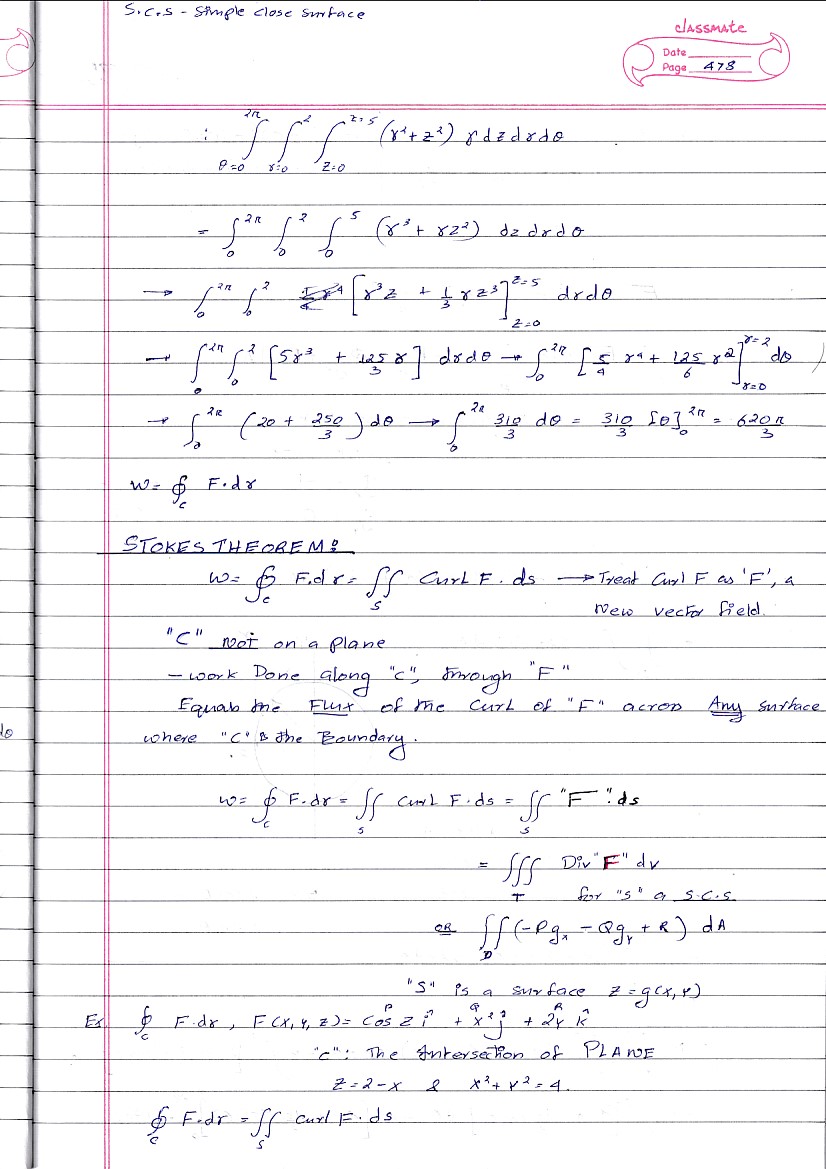 S.C.S - Simple close surface
classmate
Date
Page 478
: ∫_{θ=0}^{2π} ∫_{r=0}^{2} ∫_{z=0}^{z=5} (r²+z²) r dz dr dθ
= ∫_0^{2π} ∫_0^2 ∫_0^5 (r³ + rz²) dz dr dθ
→ ∫_0^{2π} ∫_0^2 [r³z + 1/3 rz³]_{z=0}^{z=5} dr dθ
→ ∫_0^{2π} ∫_0^2 [5r³ + 125/3 r] dr dθ → ∫_0^{2π} [5/4 r⁴ + 125/6 r²]_{r=0}^{r=2} dθ
→ ∫_0^{2π} (20 + 250/3) dθ → ∫_0^{2π} 310/3 dθ = 310/3 [θ]_0^{2π} = 620π/3
W = ∮_C F·dr
STOKES THEOREM:
W = ∮_C F.dr = ∬_S Curl F · ds → Treat Curl F as 'F', a
New vector field.
"C" Not on a plane
- Work Done along "C", through "F"
Equals the Flux of the Curl of "F" across Any surface
do
where "C" is the Boundary.
W = ∮_C F·dr = ∬_S Curl F·ds = ∬_S "F"·ds
= ∭_T Div "F" dv
for "S" a S.C.S.
OR ∬_D (-Pg_x - Qg_y + R) dA
"S" is a surface z = g(x,y)
Ex ∮_C F.dr, F(x, y, z) = P cos z î + Q x² ĵ + R 2y k̂
"C": The Intersection of PLANE
z = 2-x & x² + y² = 4.
∮_C F.dr = ∬_S curl F · ds